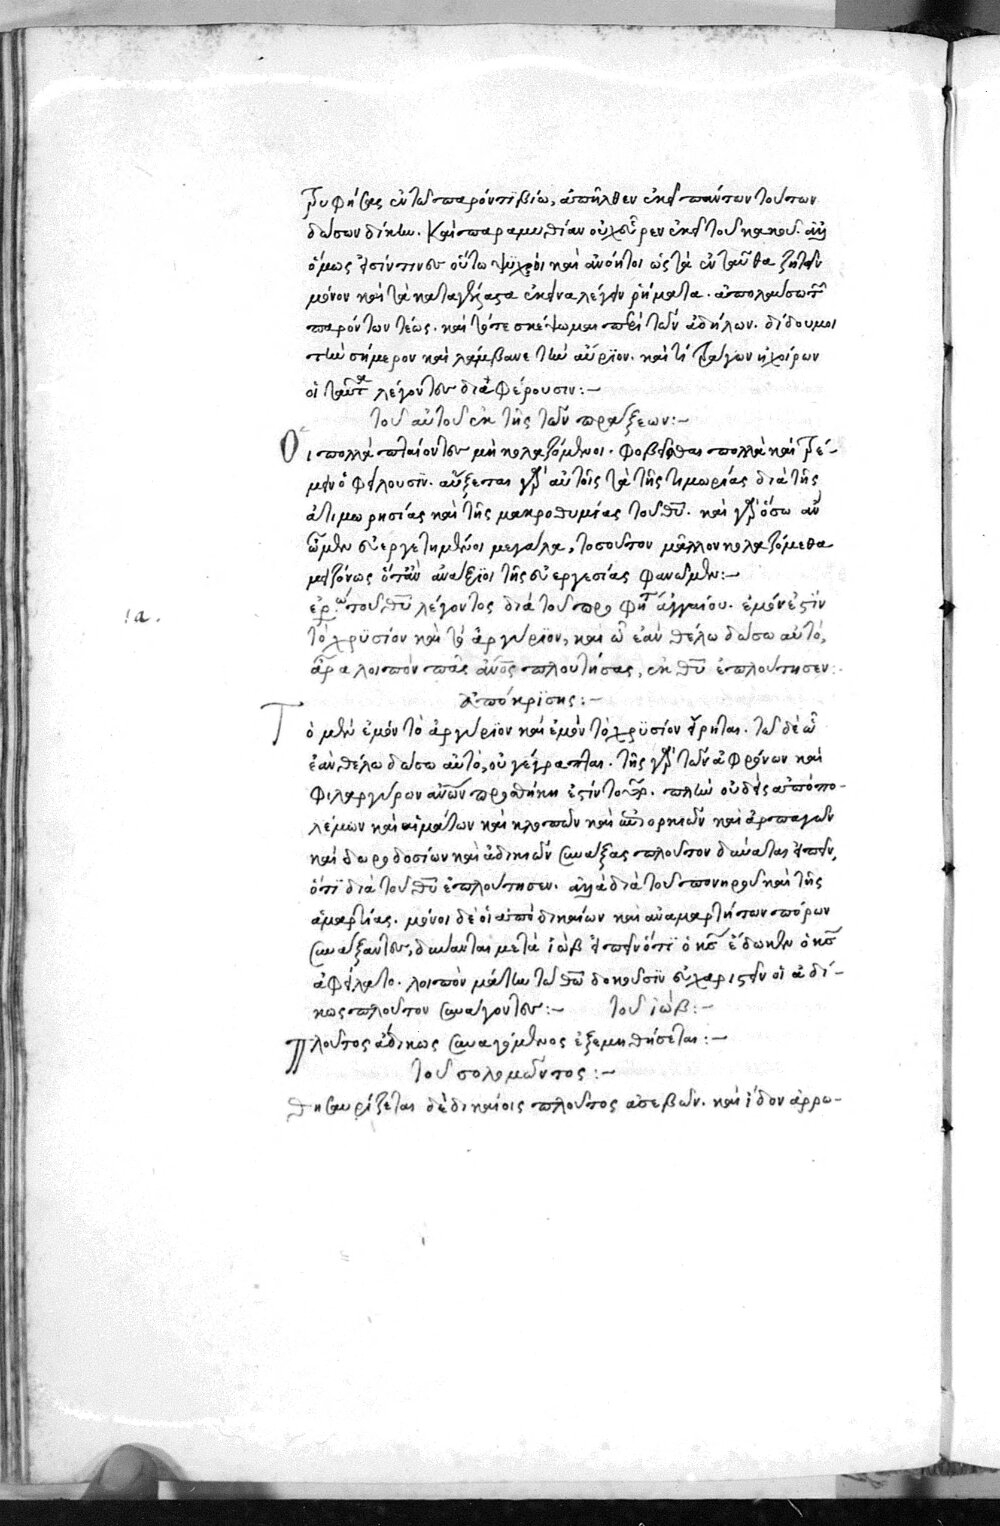 τρυφήσας ἐν τῶ παρόντι βίω, ἀπῆλθεν ἐκεῖ πάντων τούτων
δώσων δίκην. καὶ παραμυθίαν οὐχ εὗρεν ἐκεῖ τοῦ κακοῦ. ἀλλ
ὅμως εἰσίν τινες οὕτω ψυχροὶ καὶ ἀνόητοι ὡς τὰ ἐνταῦθα ζητεῖν
μόνον καὶ τὰ καταγέλαστα ἐκεῖνα λέγειν ῥήματα. ἀπολαύσω τῶν
παρόντων τέως. καὶ τότε σκέψωμαι περὶ τῶν ἀδήλων. δίδου μοι
τὴν σήμερον καὶ λάμβανε τὴν αὔριον. καὶ τί τράγων ἢ χοίρων
οἱ ταῦτα λέγοντες διαφέρουσιν:~
τοῦ αὐτοῦ ἐκ τῆς τῶν πράξεων:~
Οἱ πολλὰ πταίοντες μὴ κολαζόμενοι. φοβεῖσθαι πολλὰ καὶ τρέ-
μειν ὀφείλουσιν. αὔξεται γὰρ αὐτοῖς τὰ τῆς τιμωρίας διὰ τῆς
ἀτιμωρησίας καὶ τῆς μακροθυμίας τοῦ θυ. καὶ γὰρ ὅσω ἂν
ὦμεν εὐεργετημένοι μεγάλα, τοσοῦτον μᾶλλον κολαζόμεθα
μειζόνως ὅταν ἀνάξιοι τῆς εὐεργεσίας φανῶμεν:~
ια. ἐρώ τοῦ θυ λέγοντος διὰ τοῦ προφήτ ἀγγαίου. ἐμόν ἐστιν
τὸ χρυσίον καὶ τὸ ἀργύριον, καὶ ὧ ἐὰν θέλω δώσω αὐτό,
ἄρα λοιπὸν πᾶς ἄνος πλουτήσας, ἐκ θυ ἐπλούτησεν:
ἀπόκρισις:~
Τὸ μὲν ἐμὸν τὸ ἀργύριον καὶ ἐμὸν τὸ χρυσίον εἴρηται. τὸ δὲ ὧ
ἐὰν θέλω δώσω αὐτό, οὐ γέγραπται. τῆς γὰρ τῶν ἀφρόνων καὶ
φιλαργύρων ἀνων προσθήκη ἐστὶν τοῦτο. πλὴν οὐδεὶς ἀπὸ πο-
λέμων καὶ αἱμάτων καὶ κλοπῶν καὶ ἐπιορκιῶν καὶ ἁρπαγῶν
καὶ δωροδοσίων καὶ ἀδικιῶν συνάξας πλοῦτον δύναται εἰπεῖν,
ὅτι διὰ τοῦ θυ ἐπλούτησεν. ἀλλὰ διὰ τοῦ πονηροῦ καὶ τῆς
ἁμαρτίας. μόνοι δὲ οἱ ἀπὸ δικαίων καὶ ἀναμαρτήτων πόρων
συνάξαντες, δύνανται μετὰ ἰὼβ εἰπεῖν ὅτι ὁ κς ἔδωκεν ὁ κς
ἀφείλατο. λοιπὸν μάτην τῶ θω δοκοῦσιν εὐχαριστεῖν οἱ ἀδί-
κως πλοῦτον συνάγοντες:~ τοῦ ἰώβ:~
Πλοῦτος ἀδίκως συναγόμενος ἐξεμηθήσεται:~
τοῦ σολομῶντος:~
θησαυρίζεται δὲ δικαίοις πλοῦτος ἀσεβῶν. καὶ ἴδον ἀρρω-